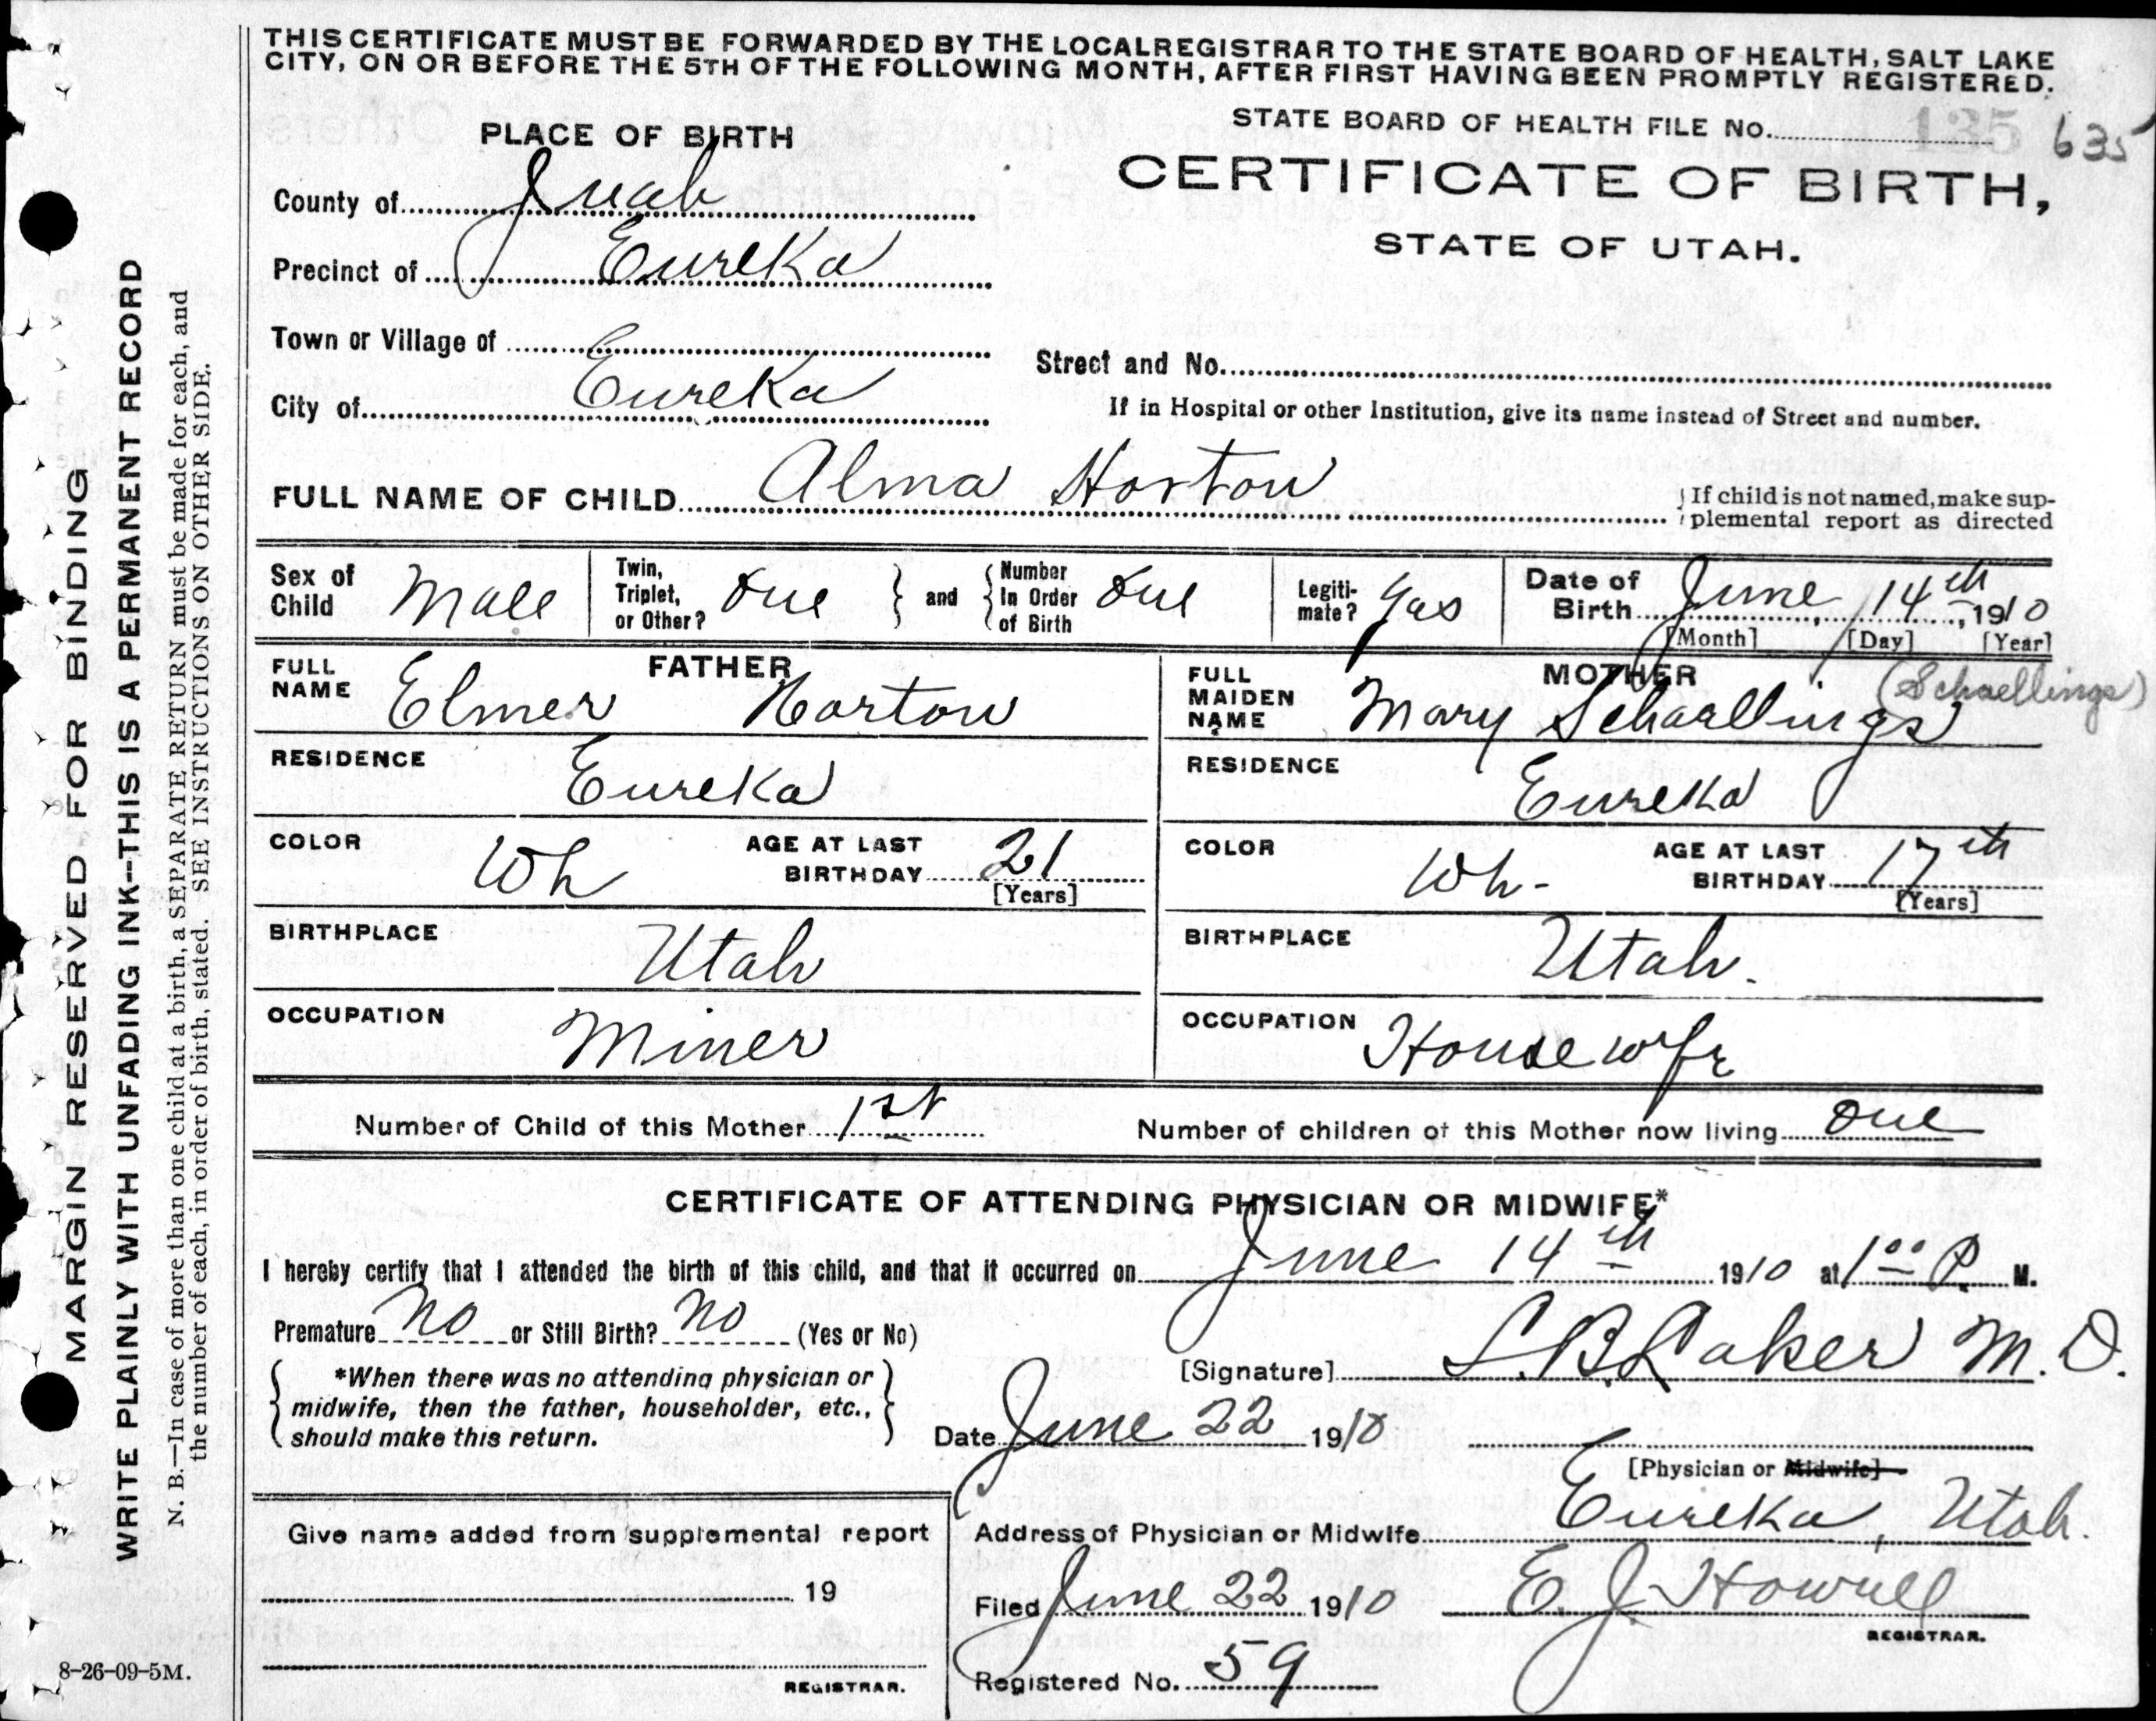 THIS CERTIFICATE MUST BE FORWARDED BY THE LOCAL REGISTRAR TO THE STATE BOARD OF HEALTH, SALT LAKE
CITY, ON OR BEFORE THE 5TH OF THE FOLLOWING MONTH, AFTER FIRST HAVING BEEN PROMPTLY REGISTERED.
STATE BOARD OF HEALTH FILE No. 135 635
PLACE OF BIRTH
CERTIFICATE OF BIRTH,
STATE OF UTAH.
County of Juab
Precinct of Eureka
Town or Village of
Street and No.
City of Eureka
If in Hospital or other Institution, give its name instead of Street and number.
FULL NAME OF CHILD Alma Horton
If child is not named, make sup-
plemental report as directed
Sex of Child Male
Twin, Triplet, or Other? One
and
Number In Order of Birth One
Legiti-mate? Yas
Date of Birth June 14th, 1910
[Month] [Day] [Year]
FATHER
FULL NAME Elmer Horton
RESIDENCE Eureka
COLOR Wh
AGE AT LAST BIRTHDAY 21
[Years]
BIRTHPLACE Utah
OCCUPATION Miner
MOTHER
FULL MAIDEN NAME Mary Schaellings (Schaellings)
RESIDENCE Eureka
COLOR Wh-
AGE AT LAST BIRTHDAY 17th
[Years]
BIRTHPLACE Utah.
OCCUPATION House wfe
Number of Child of this Mother 1st
Number of children of this Mother now living One
CERTIFICATE OF ATTENDING PHYSICIAN OR MIDWIFE*
I hereby certify that I attended the birth of this child, and that it occurred on June 14th 1910 at 1 00 P. M.
Premature No or Still Birth? No (Yes or No)
*When there was no attending physician or
midwife, then the father, householder, etc.,
should make this return.
[Signature] S.B. Laker M.D.
Date June 22 1910
[Physician or Midwife]
Address of Physician or Midwife Eureka, Utah.
Give name added from supplemental report
19
REGISTRAR.
Filed June 22 1910 E. J. Howell
REGISTRAR.
Registered No. 59
8-26-09-5M.
MARGIN RESERVED FOR BINDING
WRITE PLAINLY WITH UNFADING INK--THIS IS A PERMANENT RECORD
N. B.—In case of more than one child at a birth, a SEPARATE RETURN must be made for each, and
the number of each, in order of birth, stated. SEE INSTRUCTIONS ON OTHER SIDE.